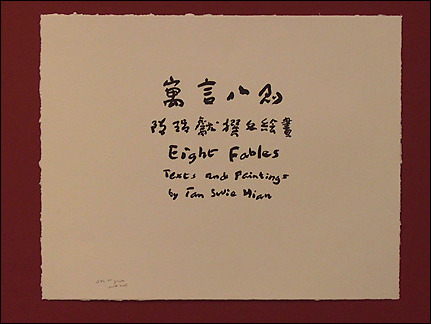 寓言八則
陳瑞獻撰文繪畫
Eight Fables
Texts and Paintings
by Tan Swie Hian